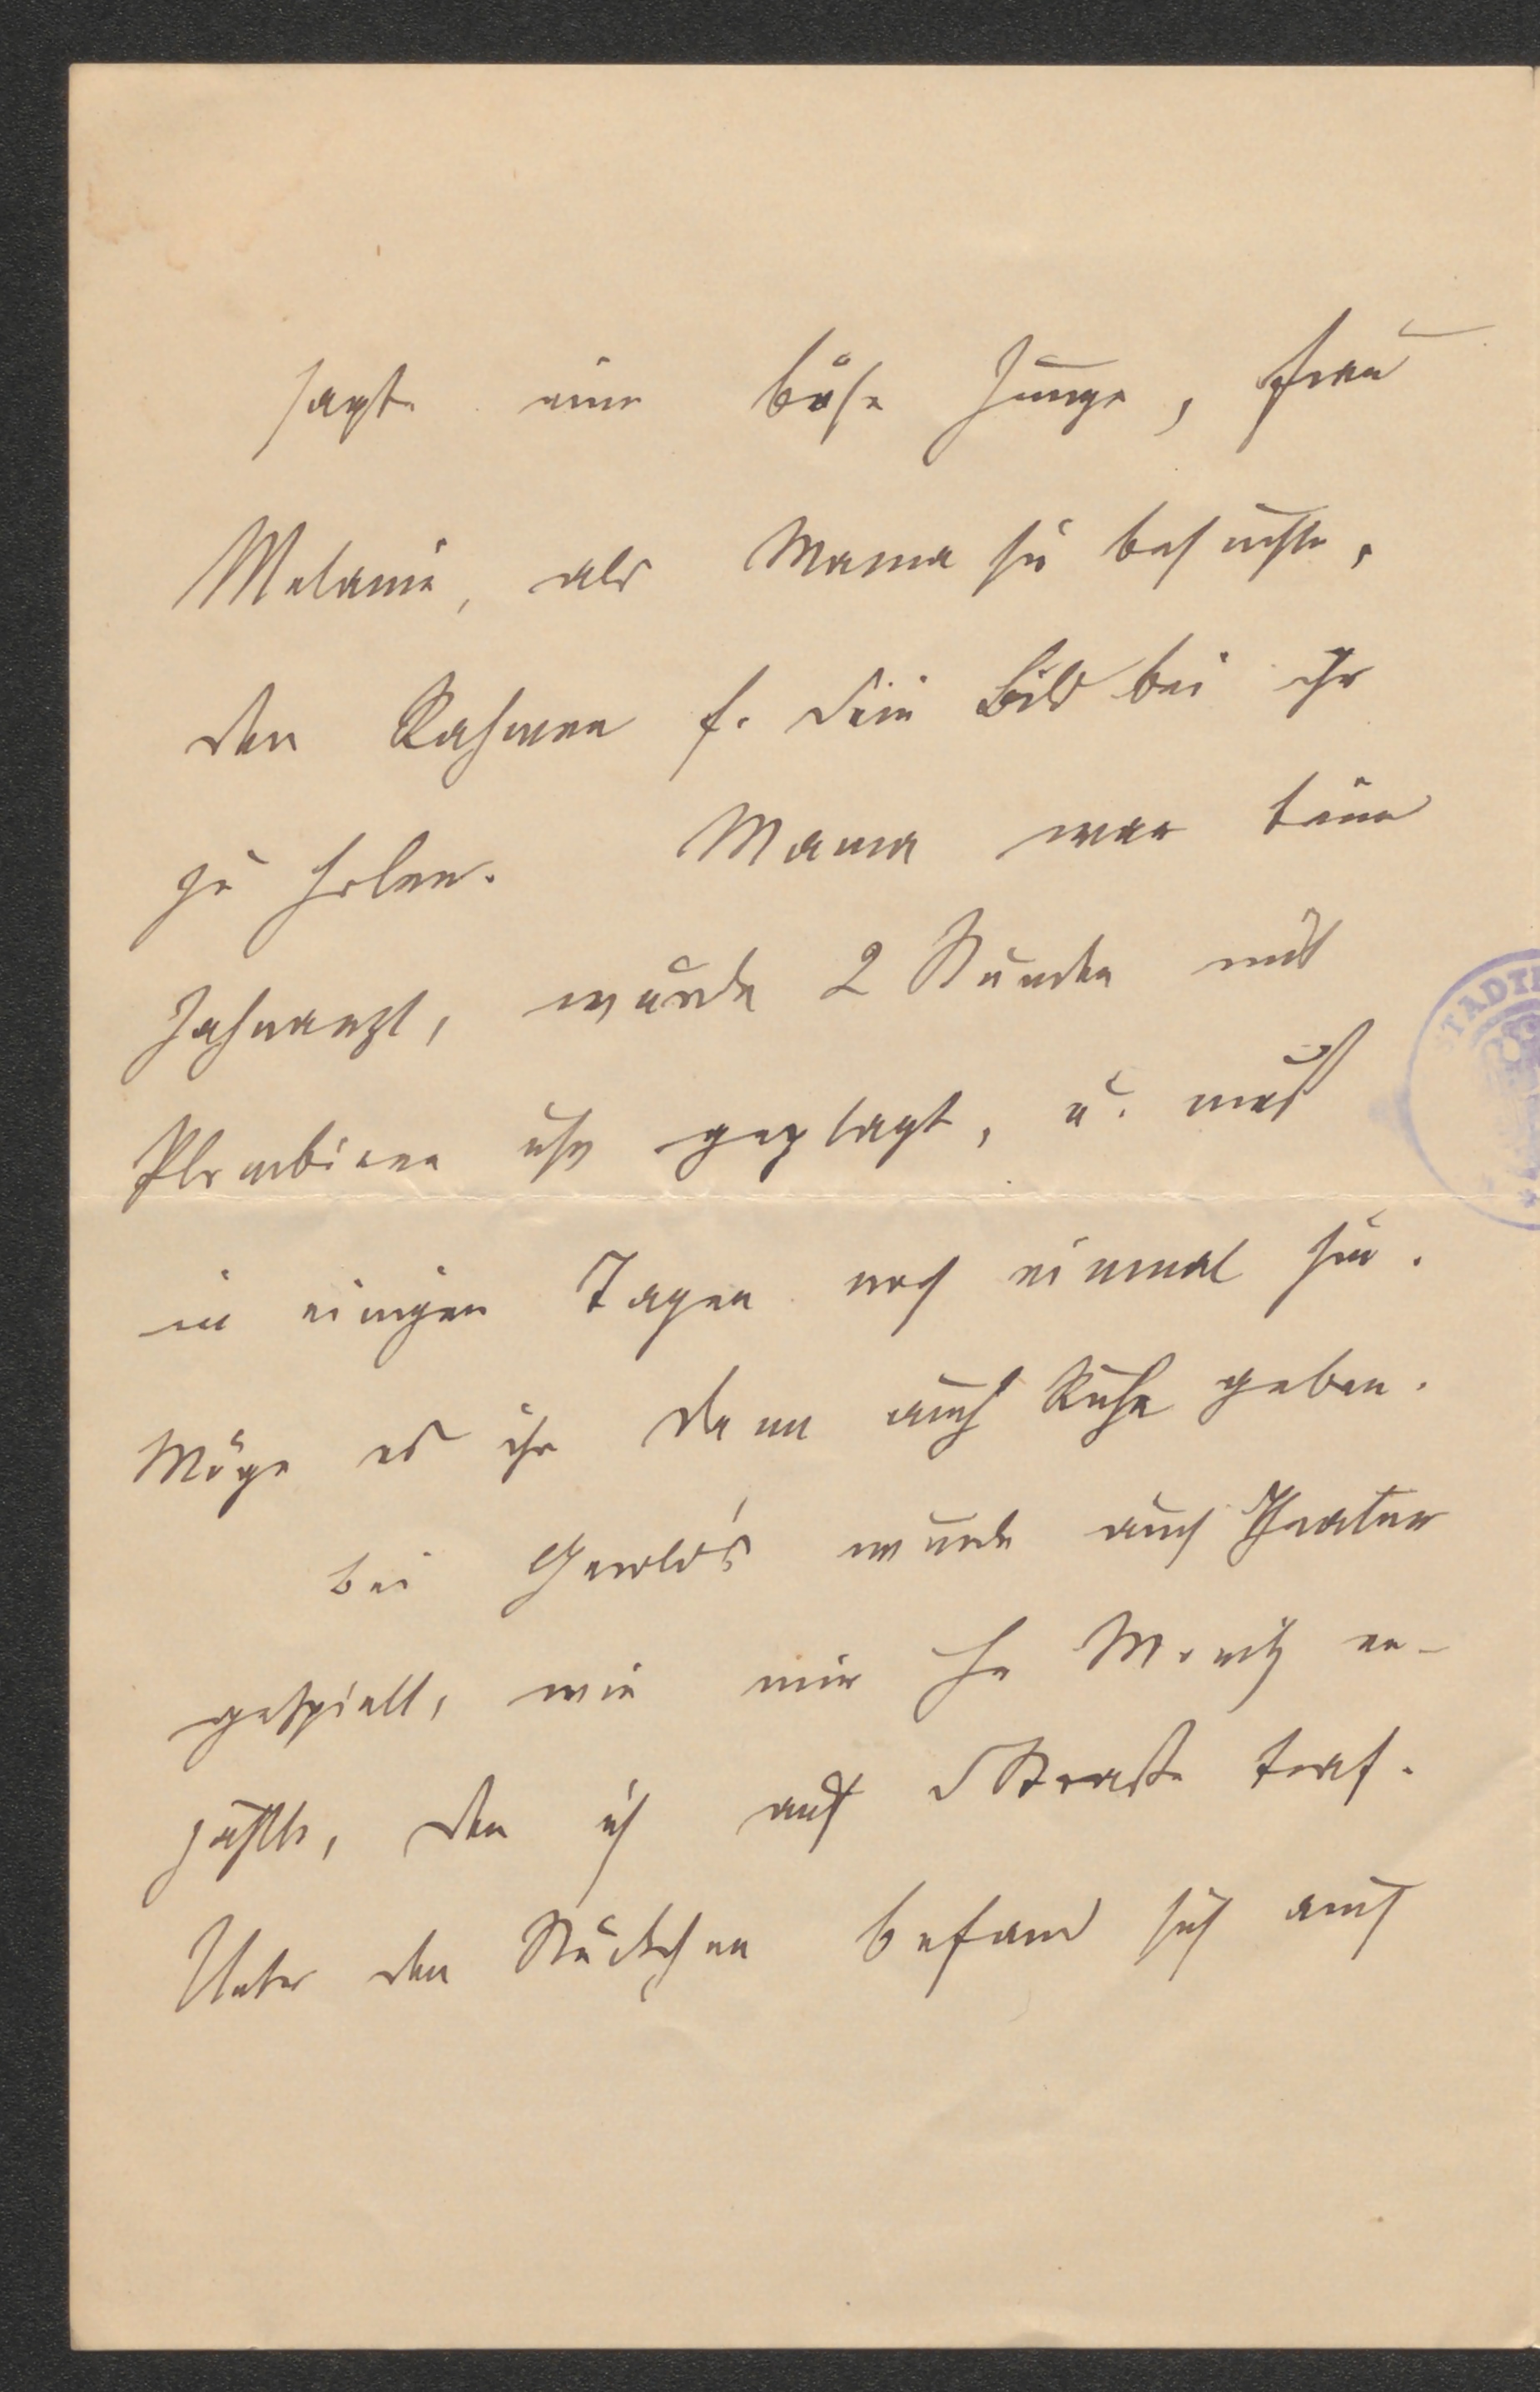 sagte eine böse Zunge, Frau
Melanie, als Mama sie besuchte,
den Rahmen f. dein Bild bei ihr
zu holen. Mama war beim
Zahnarzt, wurde 2 Stunden mit
Plombiren usw geplagt, u. muß
in einigen Tagen noch einmal hin.
Möge es ihr dann auch Ruhe geben.
bei Gerold's wurde auch Theater
gespielt, wie mir H. Moritz er-
zählte, den ich auf d Straße traf.
Unter den Stückchen befand sich auch
STADT